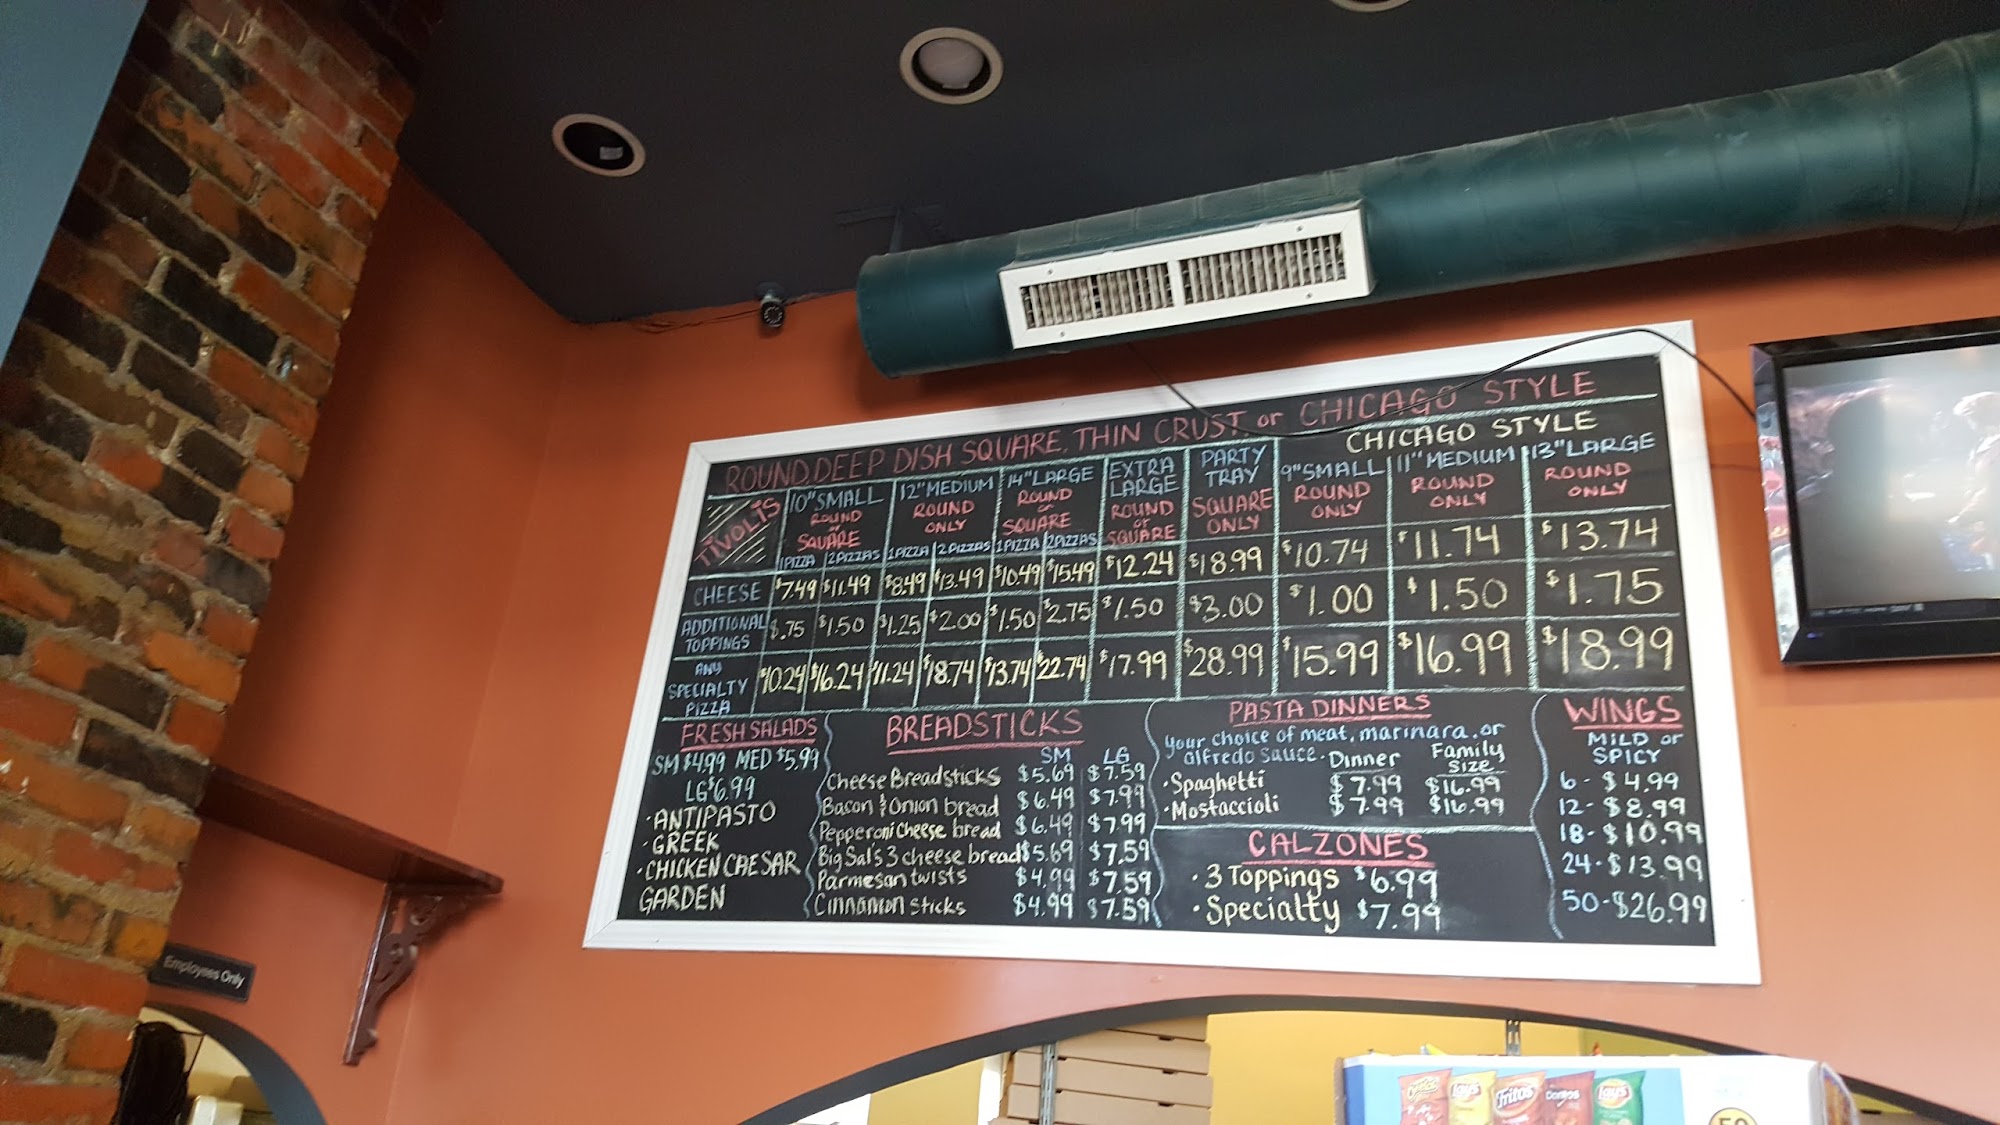 ROUND, DEEP DISH SQUARE, THIN CRUST, or CHICAGO STYLE
CHICAGO STYLE
TIVOLI'S
10" SMALL
ROUND
or
SQUARE
1 PIZZA 2 PIZZAS
12" MEDIUM
ROUND
ONLY
1 PIZZA 2 PIZZAS
14" LARGE
ROUND
or
SQUARE
1 PIZZA 2 PIZZAS
EXTRA
LARGE
ROUND
or
SQUARE
PARTY
TRAY
SQUARE
ONLY
9" SMALL
ROUND
ONLY
11" MEDIUM
ROUND
ONLY
13" LARGE
ROUND
ONLY
CHEESE $7.49 $11.49 $8.49 $13.49 $10.49 $15.49 $12.24 $18.99 $10.74 $11.74 $13.74
ADDITIONAL
TOPPINGS $.75 $1.50 $1.25 $2.00 $1.50 $2.75 $1.50 $3.00 $1.00 $1.50 $1.75
ANY
SPECIALTY
PIZZA $10.24 $16.24 $11.24 $18.74 $13.74 $22.74 $17.99 $28.99 $15.99 $16.99 $18.99
FRESH SALADS
SM $4.99 MED $5.99
LG $6.99
· ANTIPASTO
· GREEK
· CHICKEN CAESAR
GARDEN
BREADSTICKS
SM LG
Cheese Breadsticks $5.69 $7.59
Bacon & Onion bread $6.49 $7.99
Pepperoni Cheese bread $6.49 $7.99
Big Sal's 3 cheese bread $5.69 $7.59
Parmesan twists $4.99 $7.59
Cinnamon sticks $4.99 $7.59
PASTA DINNERS
your choice of meat, marinara, or
alfredo sauce. Dinner Family
Size
· Spaghetti $7.99 $16.99
· Mostaccioli $7.99 $16.99
CALZONES
· 3 Toppings $6.99
· Specialty $7.99
WINGS
MILD or
SPICY
6 - $4.99
12 - $8.99
18 - $10.99
24 - $13.99
50 - $26.99
Employees Only
Lay's
Fritos
Doritos
Lay's
50